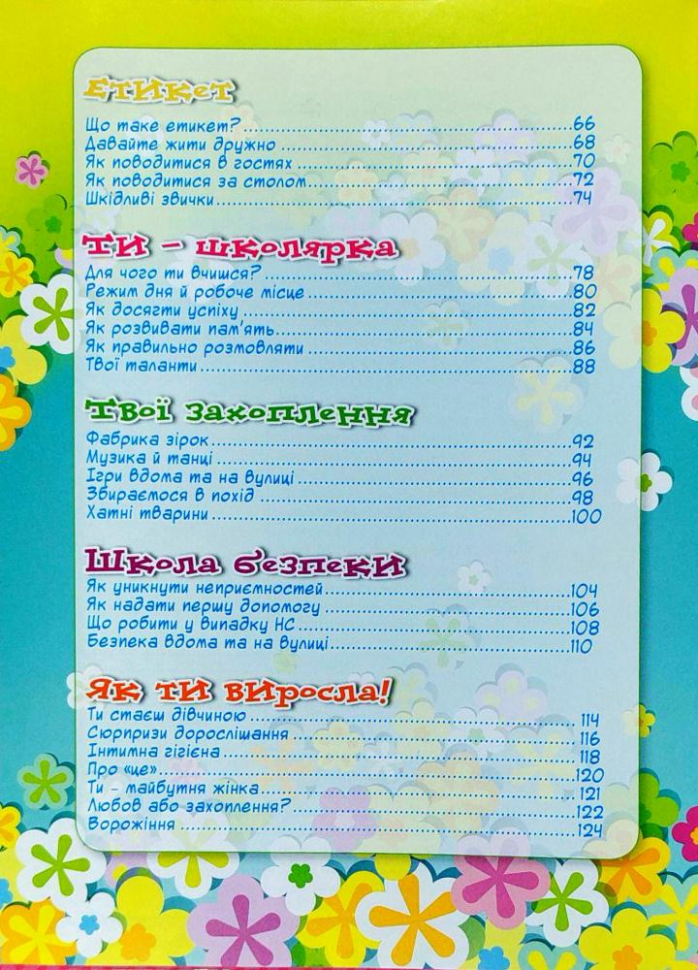 Етикет
Що таке етикет?........66
Давайте жити дружно........68
Як поводитися в гостях........70
Як поводитися за столом........72
Шкідливі звички........74
Ти – школярка
Для чого ти вчишся?........78
Режим дня й робоче місце........80
Як досягти успіху........82
Як розвивати пам'ять........84
Як правильно розмовляти........86
Твої таланти........88
Твої захоплення
Фабрика зірок........92
Музика й танці........94
Ігри вдома та на вулиці........96
Збираємося в похід........98
Хатні тварини........100
Школа безпеки
Як уникнути неприємностей........104
Як надати першу допомогу........106
Що робити у випадку НС........108
Безпека вдома та на вулиці........110
Як ти виросла!
Ти стаєш дівчиною........114
Сюрпризи дорослішання........116
Інтимна гігієна........118
Про «це»........120
Ти – майбутня жінка........121
Любов або захоплення?........122
Ворожіння........124